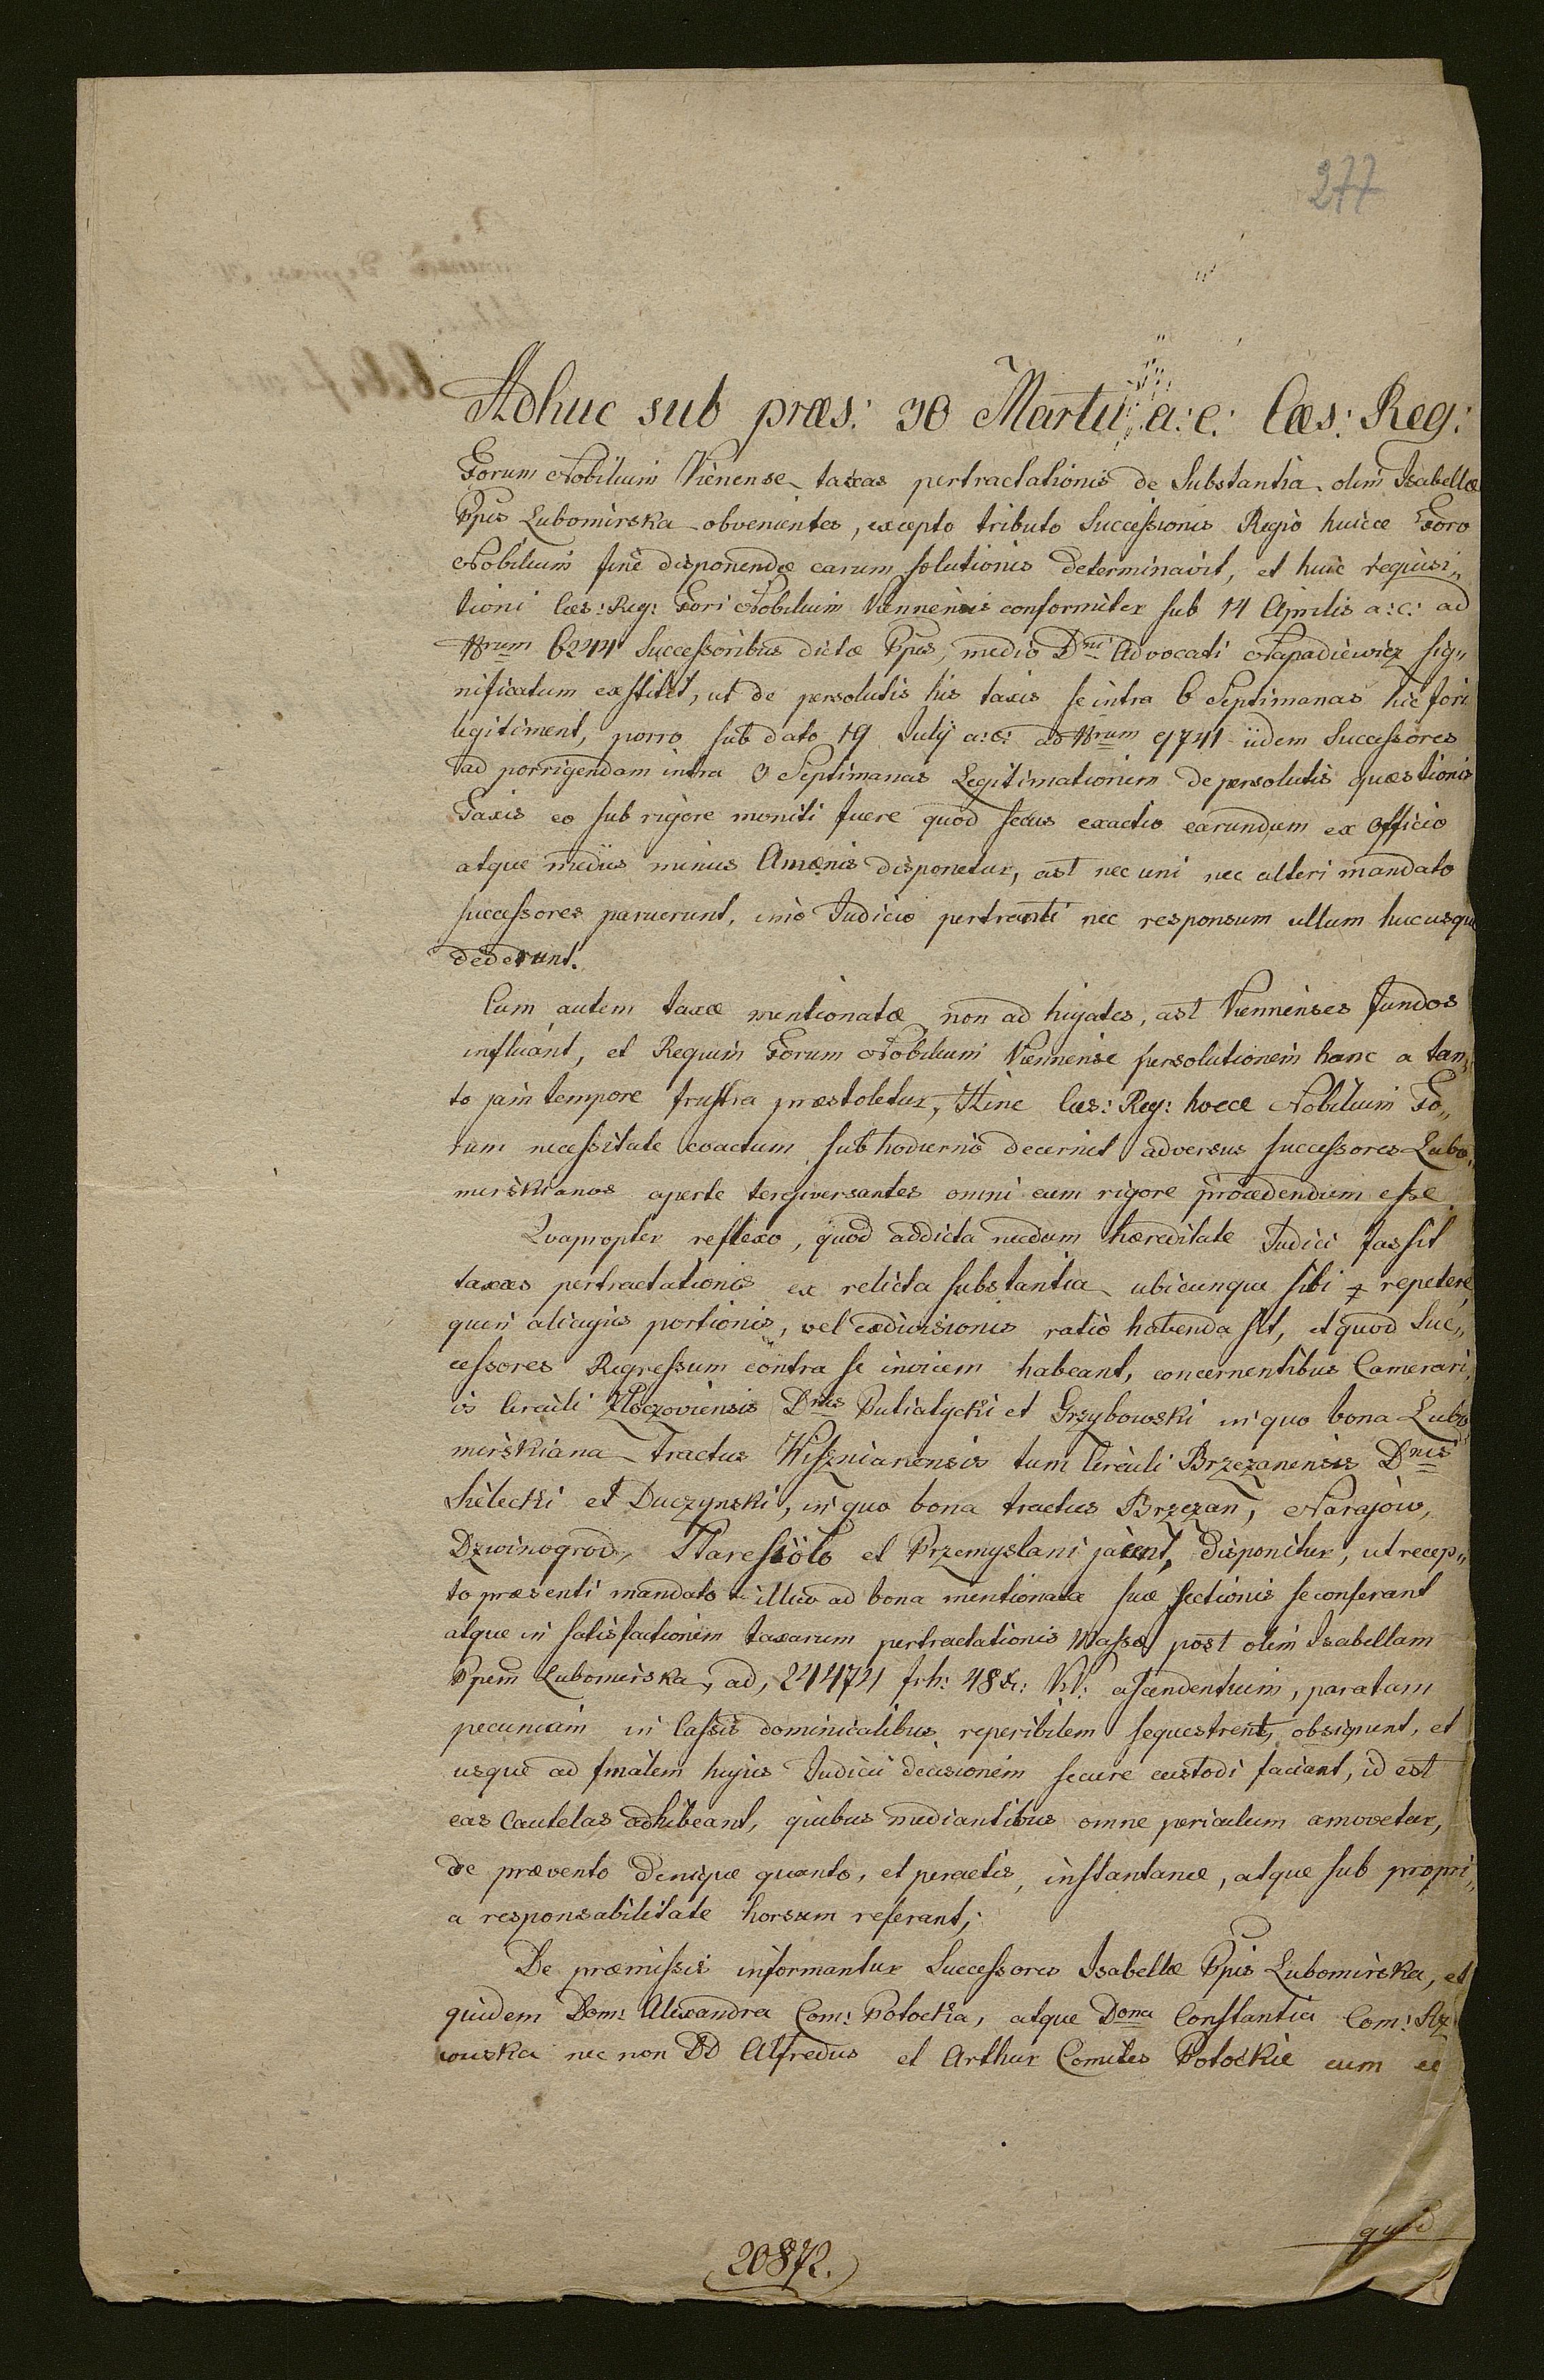 277
Adhuc sub præs: 30 Martii a: c: Cæs: Reg:
Forum Nobilium Vienense taxas pertractationis de Substantia olim Isabellæ
Ppis Lubomirska obvenientes, excepto tributo Successionis Regio huicce Foro
Nobilium fine disponendæ earum solutionis determinavit, et huic requisi„
tioni Cæs: Reg: Fori Nobilium Viennensis conformiter sub 14 Aprilis a: c: ad
Nrum 6244 Successoribus dictæ Ppis, medio Dni Advocati Napadiewicz sig„
nificatum exstitit, ut de persolutis his taxis se intra 6 Septimanas hic fori
legitiment, porro sub dato 19 Julÿ a: c: ad Nrum 9741 iidem Successores
ad porrigendam intra 3 Septimanas Legitimationem de persolutis quæstionis
Taxis eo sub rigore moniti fuere quod secus exactio earundum ex Officio
atque mediis minus Amænis disponetur, ast nec uni nec alteri mandato
successores paruerunt, imo Judicio pertranti nec responsum ullum hucusque
dederunt.
Cum autem taxæ mentionatæ non ad hujates, ast Viennenses fundos
influant, et Regium Forum Nobilium Viennense persolutionem hanc a tan„
to jam tempore frustra præstoletur, Hinc Cæs: Reg: hocce Nobilium Fo„
rum necessitate coactum sub hodierno decernit adversus successores Lubo„
mirskianos aperte tergiversantes omni cum rigore procedendum esse
Qvapropter reflexo, quod addicta nedum hæreditate Judici fas sit
taxas pertractationis ex relicta substantia ubicunque sibi repetere,
quin alicujus portionis, vel exdivisionis ratio habenda sit, et quod Suc„
cessores Regressum contra se invicem habeant, concernentibus Camerari„
is Circuli Zloczoviensis Dnis Putiatycki et Grzybowski in quo bona Lubo„
mirskiana tractus Wisznianensis tum Circuli Brzezanensis Dnis
Shelecki et Duczynski, in quo bona tractus Brzezan, Narajow,
Dzwinogrod, Staresioło et Przemyslani jacent, disponitur, ut recep„
to præsenti mandato illico ad bona mentionata suæ sectionis se conferant
atque in satisfactionem taxarum pertractationis Massæ post olim Isabellam
Ppem Lubomirska, ad, 24474 frh: 48 xr: VV: ascendentium, paratam
pecuniam in Cassis dominicalibus reperibilem sequestrent, obsignent, et
usque ad finalem hujus Judicii decisionem secure custodi faciant, id est
eas Cautelas adhibeant, quibus mediantibus omne periculum amovetur,
de prævento denique quanto, et peractis, instantanee, atque sub propri„
a responsabilitate horsum referant;
De præmissis informantur Successores Isabellæ Ppis Lubomirska, et
quidem Dom: Alexandra Com: Potocka, atque Dona Constantia Com: Rz
wuska nec non DD Alfredus et Arthur Comites Potockie cum ee
quod
20872.